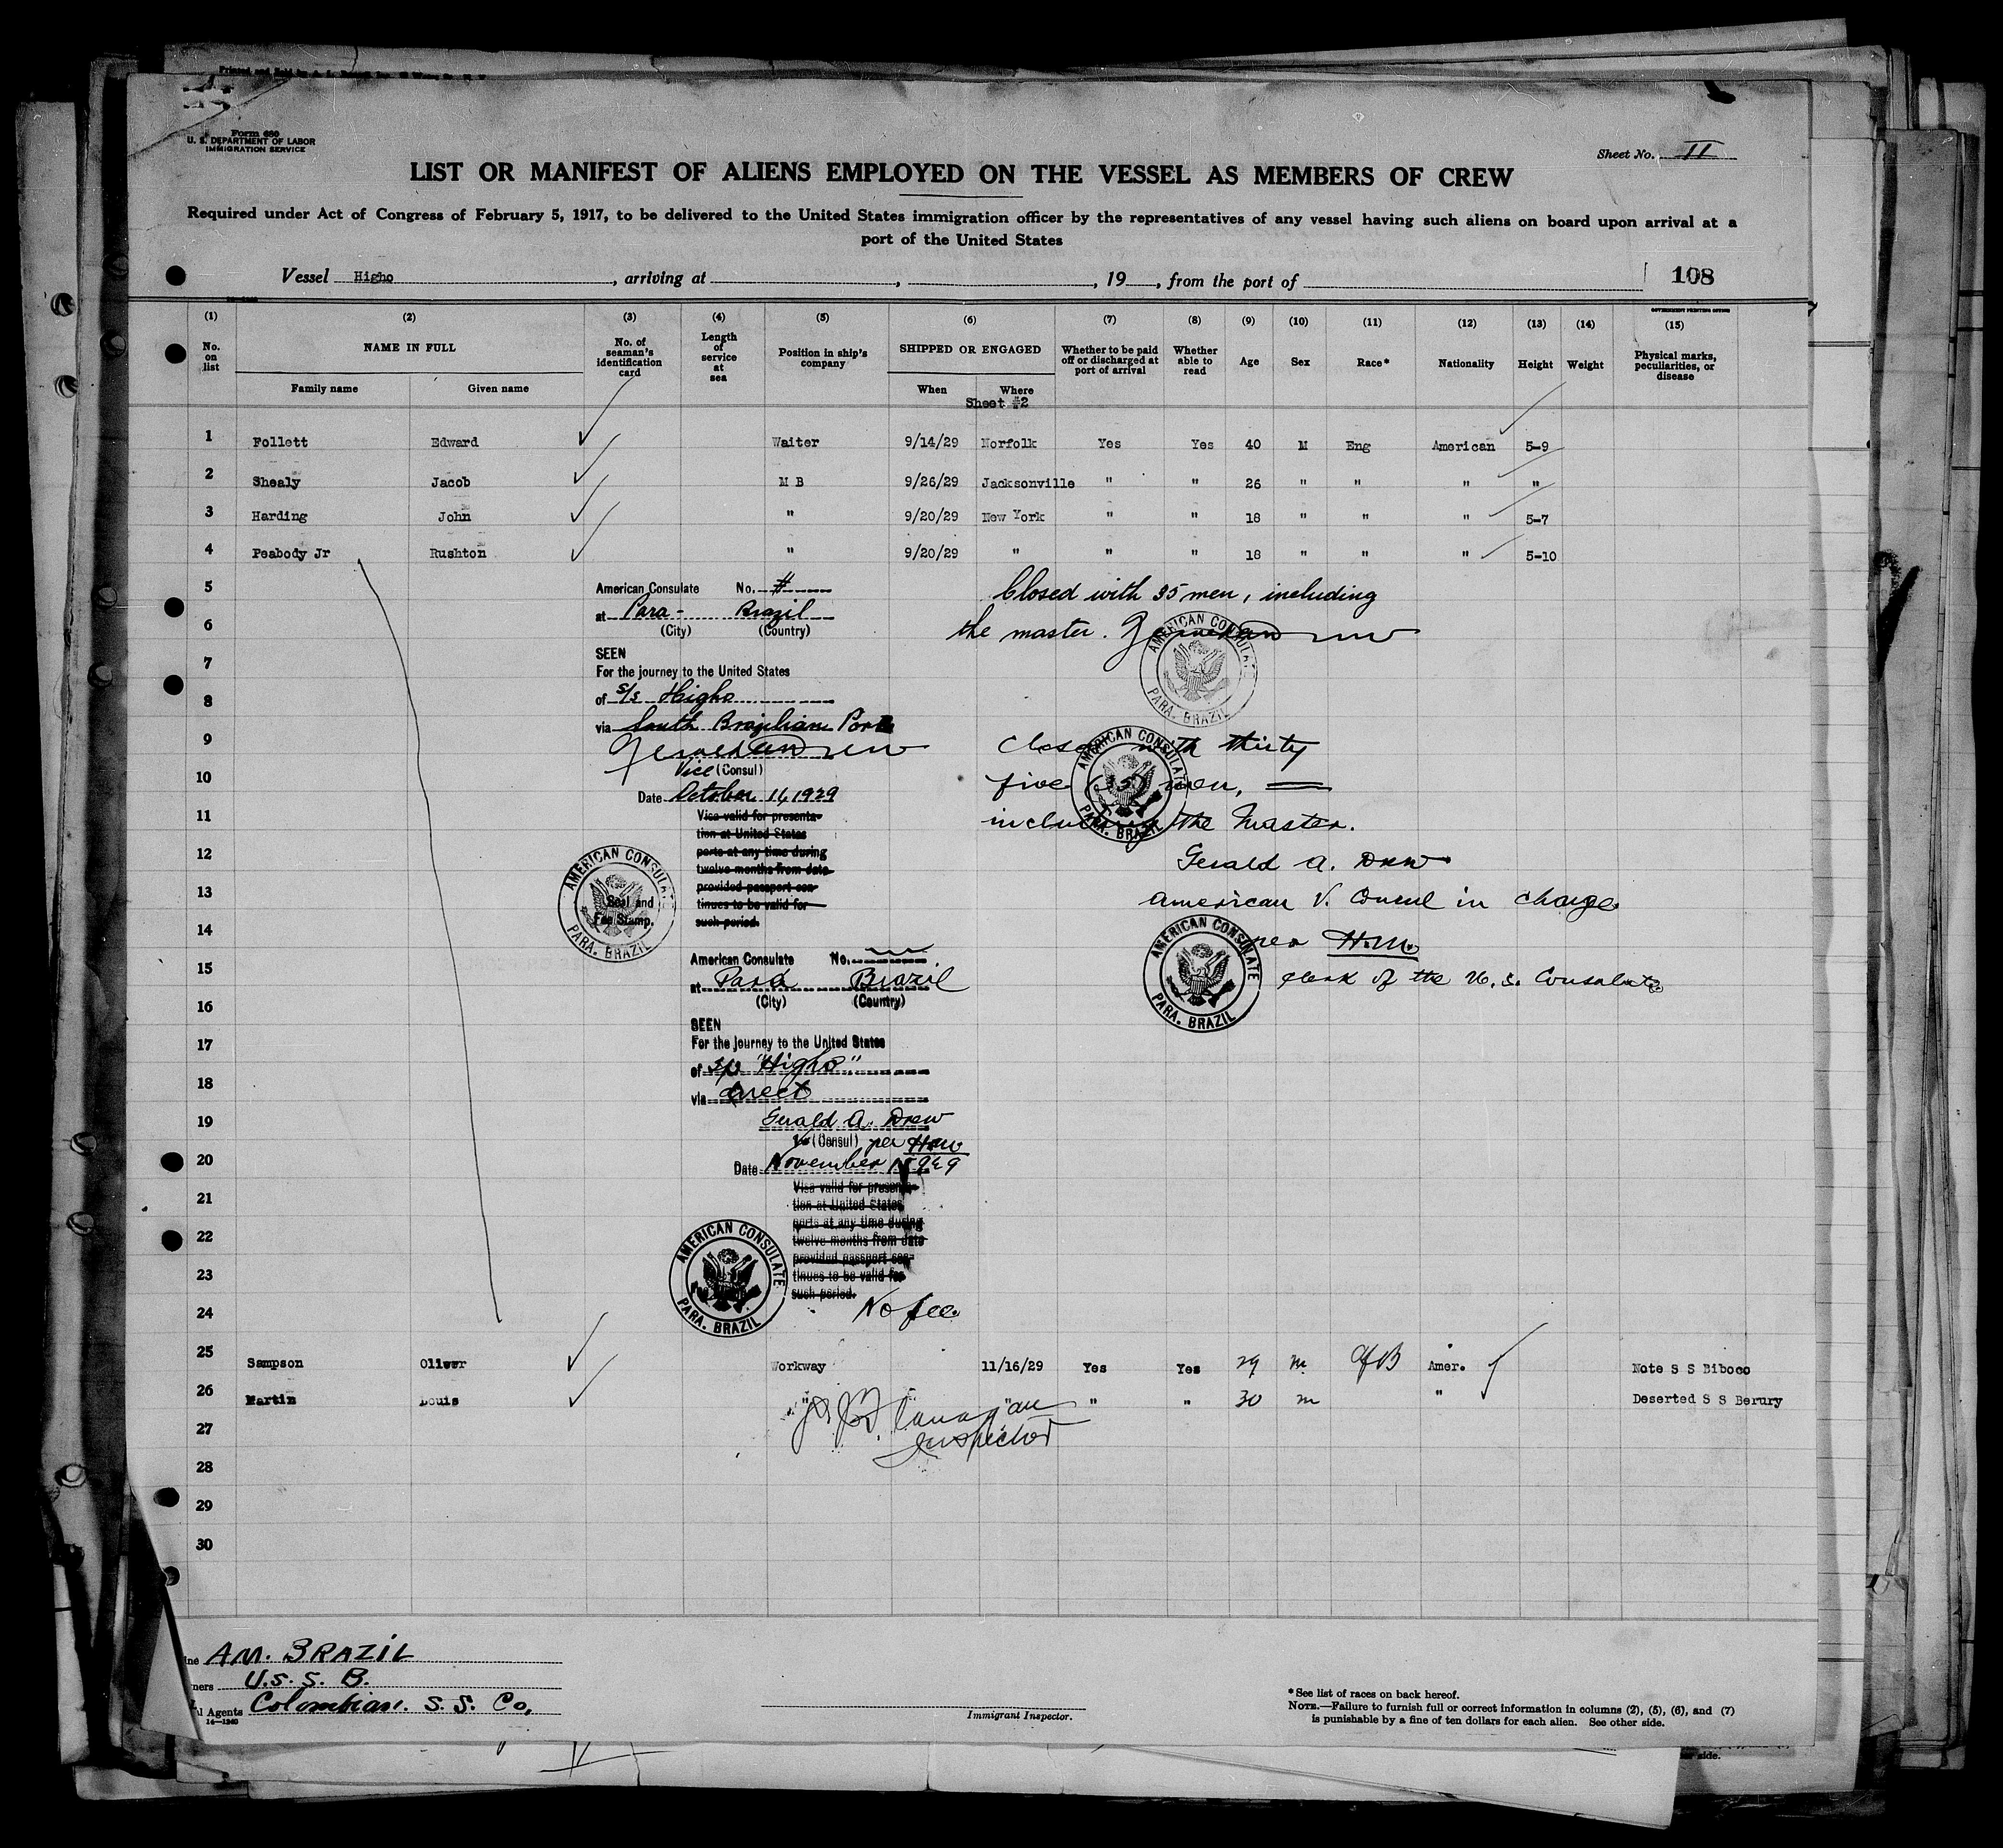 Form 680
U. S. DEPARTMENT OF LABOR
IMMIGRATION SERVICE
Sheet No. II
LIST OR MANIFEST OF ALIENS EMPLOYED ON THE VESSEL AS MEMBERS OF CREW
Required under Act of Congress of February 5, 1917, to be delivered to the United States immigration officer by the representatives of any vessel having such aliens on board upon arrival at a
port of the United States
Vessel Higho, arriving at , , 19 , from the port of
108
GOVERNMENT PRINTING OFFICE
(1) (2) (3) (4) (5) (6) (7) (8) (9) (10) (11) (12) (13) (14) (15)
No. on list NAME IN FULL No. of seaman's identification card Length of service at sea Position in ship's company SHIPPED OR ENGAGED Whether to be paid off or discharged at port of arrival Whether able to read Age Sex Race* Nationality Height Weight Physical marks, peculiarities, or disease
Family name Given name When Where
Sheet #2
1 Follett Edward Waiter 9/14/29 Norfolk Yes Yes 40 M Eng American 5-9
2 Shealy Jacob M B 9/26/29 Jacksonville " " 26 " " " "
3 Harding John " 9/20/29 New York " " 18 " " " 5-7
4 Peabody Jr Rushton " 9/20/29 " " " 18 " " " 5-10
5
6
7
8
9
10
11
12
13
14
15
16
17
18
19
20
21
22
23
24
American Consulate No. #
at Para - Brazil
(City) (Country)
SEEN
For the journey to the United States
of S/S Higho
via South Brazilian Ports
Gerald A Drew
Vice (Consul)
Date October 11, 1929
Visa valid for presenta-
tion at United States
ports at any time during
twelve months from date
provided passport con-
tinues to be valid for
such period.
AMERICAN CONSULATE
Seal and
Fee Stamp.
PARA. BRAZIL
Closed with 35 men, including
the master. Gerald A Drew
AMERICAN CONSULATE
PARA. BRAZIL
Closed with thirty
five (35) men,
including the Master.
AMERICAN CONSULATE
PARA. BRAZIL
Gerald A. Drew
American V. Consul in charge
per H.M.
clerk of the U. S. Consulate
AMERICAN CONSULATE
PARA. BRAZIL
American Consulate No.
at Pará Brazil
(City) (Country)
SEEN
For the journey to the United States
of S/S "Higho"
via direct
Gerald A. Drew
V. (Consul) per H.M.
Date November 1929
Visa valid for presenta-
tion at United States
ports at any time during
twelve months from date
provided passport con-
tinues to be valid for
such period.
No fee
AMERICAN CONSULATE
PARA. BRAZIL
25 Sampson Oliver Workway 11/16/29 Yes Yes 29 m Af B Amer. Note S S Biboco
26 Martin Louis " " " " 30 m " Deserted S S Berury
Flanagan
Inspector
27
28
29
30
ine AM. BRAZIL
ners U.S. S. B.
l Agents Colombian. S. S. Co,
14—1240
Immigrant Inspector.
* See list of races on back hereof.
NOTE.—Failure to furnish full or correct information in columns (2), (5), (6), and (7)
is punishable by a fine of ten dollars for each alien. See other side.